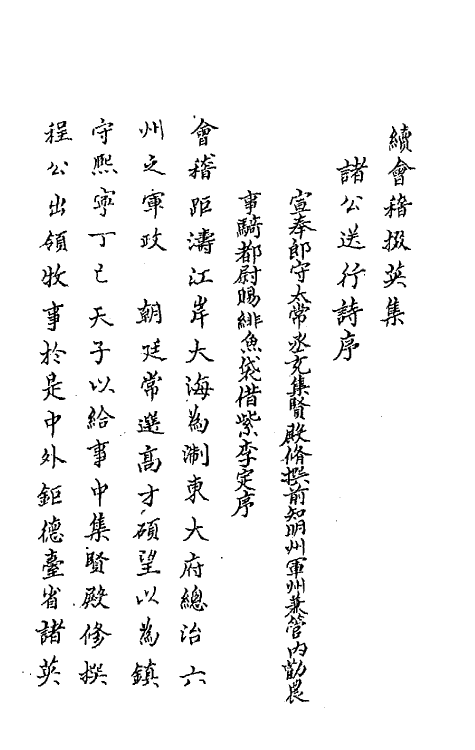 續會稽掇英集
諸公送行詩序
宣奉郎守太常丞充集賢殿脩撰前知明州軍州兼管內勸農
事騎都尉賜緋魚袋借紫李定序
會稽距濤江岸大海為淛東大府總治六
州之軍政　朝廷常選高才碩望以為鎮
守熙寧丁巳　天子以給事中集賢殿修撰
程公出領牧事於是中外鉅德臺省諸英